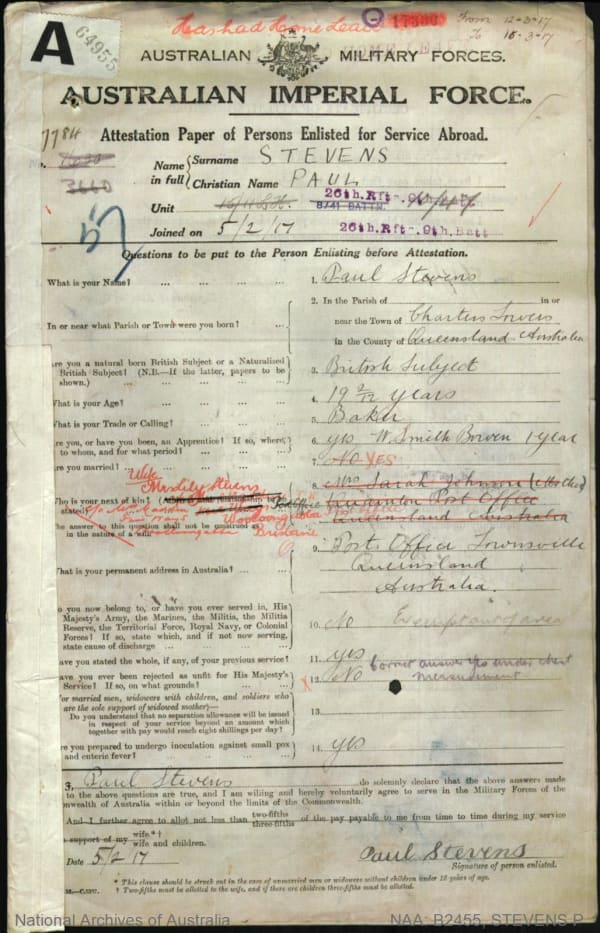 Has had Home Leave
17380
From 12-3-17
To 15-3-17
A
64955
AUSTRALIAN MILITARY FORCES.
AUSTRALIAN IMPERIAL FORCE.
7784
Attestation Paper of Persons Enlisted for Service Abroad.
No.
3660
Name in full { Surname STEVENS
Christian Name PAUL
Unit 26th. Rftr. 9th. Batt
Joined on 5/2/17 26th. Rftr. 9th. Batt
Questions to be put to the Person Enlisting before Attestation.
What is your Name? ... ... ... ... 1. Paul Stevens
In or near what Parish or Town were you born? ... 2. In the Parish of in or
near the Town of Charters Towers
in the County of Queensland Australia
Are you a natural born British Subject or a Naturalised
British Subject? (N.B.—If the latter, papers to be
shown.) ... 3. British Subject
What is your Age? ... 4. 19 2/12 years
What is your Trade or Calling? ... 5. Baker
Are you, or have you been, an Apprentice? If so, where,
to whom, and for what period? ... 6. yes W. Smith Bowen 1 year
Are you married? ... 7. NO YES
Wife
Mrs Lily Stevens
Who is your next of kin? 8. Mrs Sarah Johnson
Post Office
Woolloongabba
Brisbane
Post Office
Queensland Australia
The answer to this question shall not be construed as
in the nature of a will.
What is your permanent address in Australia? ... 9. Post Office Townsville
Queensland
Australia.
Do you now belong to, or have you ever served in, His
Majesty's Army, the Marines, the Militia, the Militia
Reserve, the Territorial Force, Royal Navy, or Colonial
Forces? If so, state which, and if not now serving,
state cause of discharge ... 10. No Exempt out of area
Have you stated the whole, if any, of your previous service? 11. yes
Have you ever been rejected as unfit for His Majesty's
Service? If so, on what grounds? 12. No Correct answer yes under chest
mersurement
(For married men, widowers with children, and soldiers who
are the sole support of widowed mother)—
Do you understand that no separation allowance will be issued
in respect of your service beyond an amount which
together with pay would reach eight shillings per day? 13.
Are you prepared to undergo inoculation against small pox
and enteric fever? ... 14. yes
I, Paul Stevens do solemnly declare that the above answers made
to the above questions are true, and I am willing and hereby voluntarily agree to serve in the Military Forces of the
Commonwealth of Australia within or beyond the limits of the Commonwealth.
And I further agree to allot not less than two-fifths three-fifths of the pay payable to me from time to time during my service
support of my wife.*† wife and children.
Date 5/2/17 Paul Stevens
Signature of person enlisted.
* This clause should be struck out in the case of unmarried men or widowers without children under 18 years of age.
† Two-fifths must be allotted to the wife, and if there are children three-fifths must be allotted.
National Archives of Australia NAA: B2455, STEVENS P